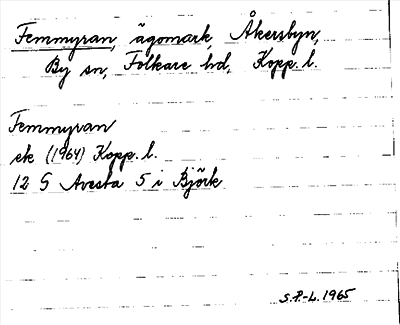 Femmyran, ägomark, Åkersbyn,
By sn, Folkare hd, Kopp. l.
Femmyran
ek (1964) Kopp. l.
12 G Avesta 5 i Björk
S.P-L. 1965